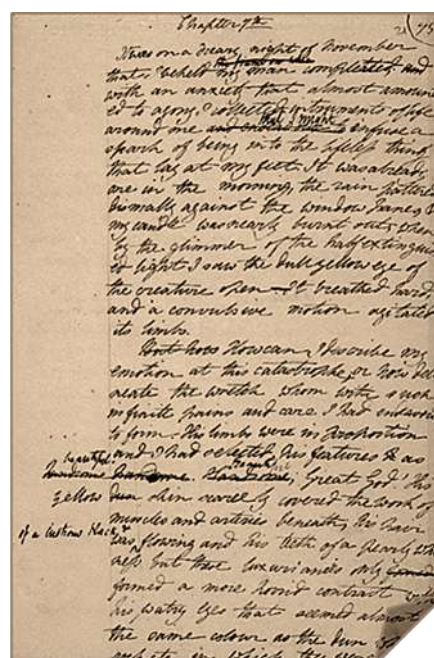 Chapter 7th
It was on a dreary night of November
that I beheld my man compleated, and
with an anxiety that almost amount
ed to agony, I collected instruments of life
around me that I might infuse a
spark of being into the lifeless thing
that lay at my feet. It was already
one in the morning, the rain pattered
dismally against the window panes &
my candle was nearly burnt out, when
by the glimmer of the half extinguish
ed light I saw the dull yellow eye of
the creature open. It breathed hard,
and a convulsive motion agitated
its limbs.
But how How can I describe my
emotion at this catastrophe, or how deli
neate the wretch whom with such
infinite pains and care I had endeavoured
to form. His limbs were in proportion
and I had selected his features as
beautiful
handsome handsome. Handsome, Great God! His
yellow dun skin scarcely covered the work of
muscles and arteries beneath; his hair
of a lustrous black & was flowing and his teeth of a pearly white
ness but these luxuriances only formed
formed a more horrid contrast with
his watry eyes that seemed almost
the same colour as the dun white
sockets in which they were